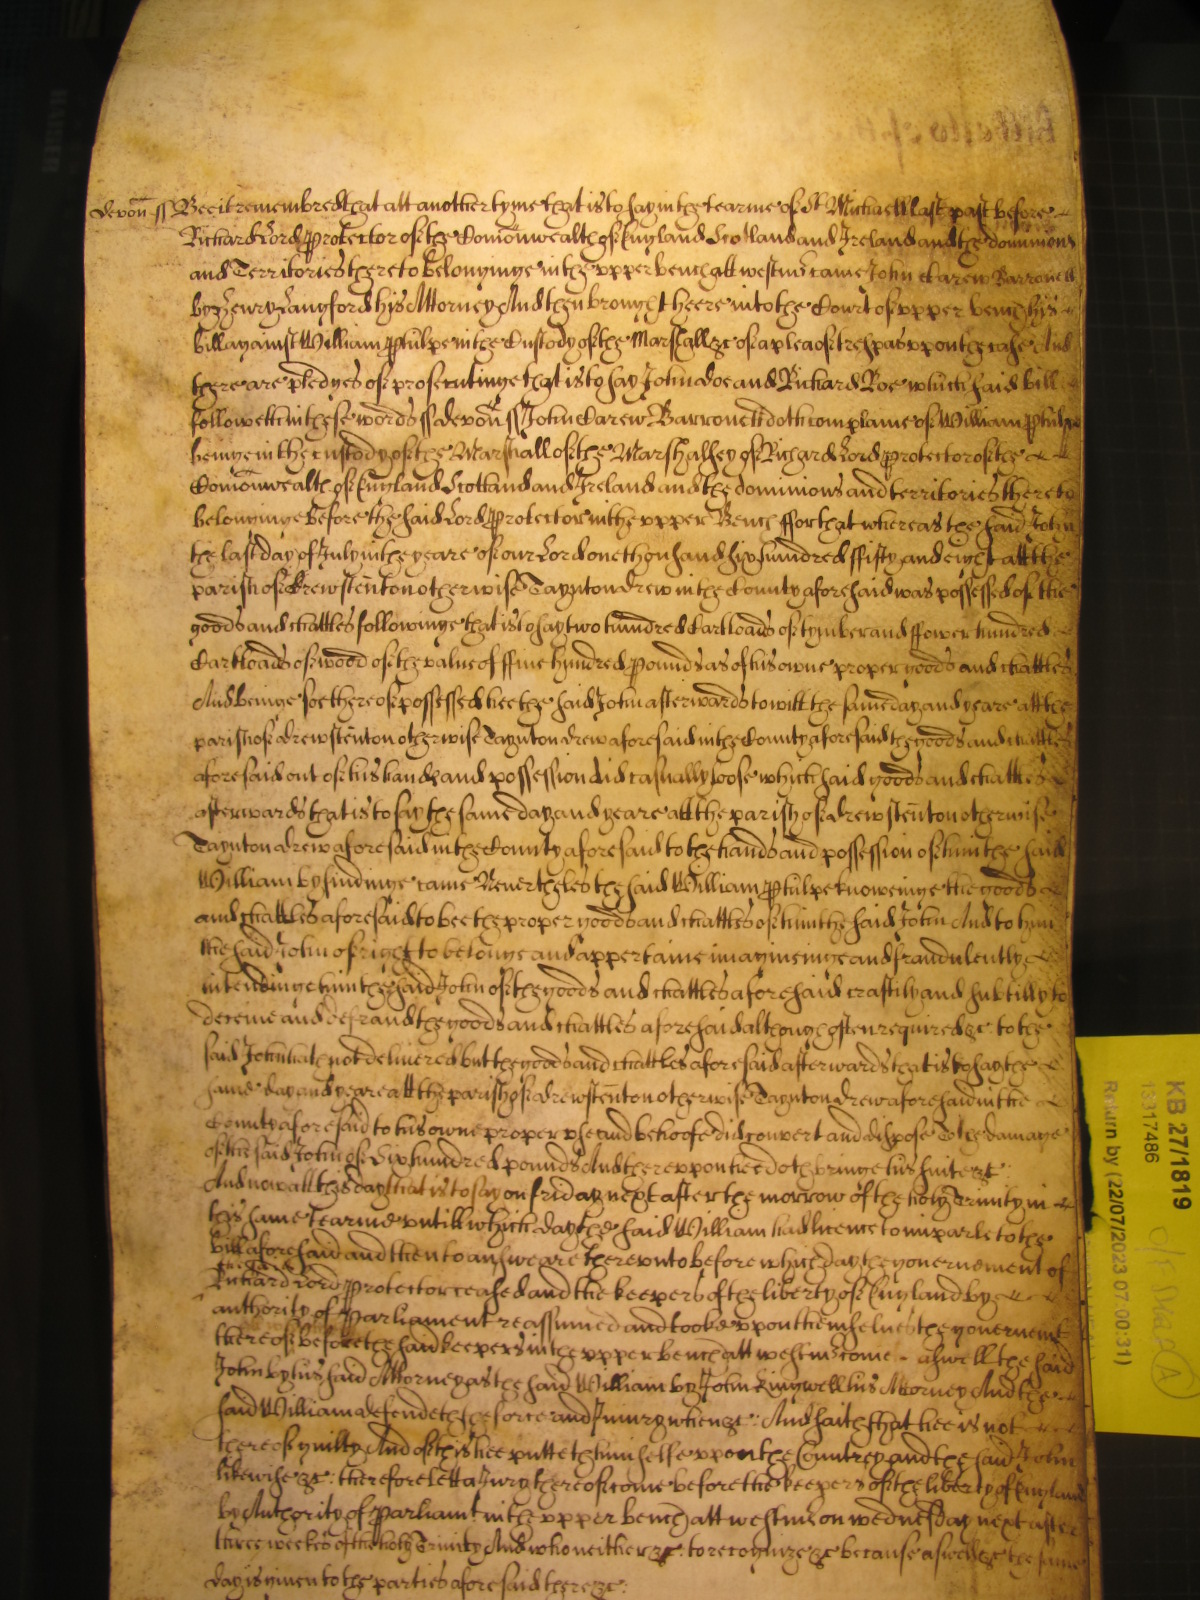 devon ss Bee it remembred that att another tyme that is to say in the tearme of St Michaell last past before
Richard Lord Protector of the Comonwealth of England Scotland and Ireland and the dominions
and Territories thereto belonginge in the vpper bench att westmr came John Carew Barronett
by Henry Langford his Attorney And then brought heere into the Court of vpper bench his
bill against William Ptulpe in the Custody of the Marshall &c of a plea of trespas vppon the case And
there are pledges of prosecutinge that is to say John doe and Richard Roe which said bill
followeth in these words ss devon ss John Carew Barronett doth complaine of William Ptulpe
beinge in the custody of the Marshall of the Marshalsey of Richard Lord Protector of the
Comonwealth of England Scotland and Ireland and the dominions and territories thereto
belonginge before the said Lord Protector in the vpper Bench ffor that whereas the said John
the last day of July in the yeare of our Lord one thousand six hundred ffifty and eight att the
parish of drewstenton otherwise Taynton drew in the County aforesaid was possessed of the
goods and chattles followinge that is to say two hundred Cartloads of tymber and ffower hundred
Cartloads of wood of the value of ffiue hundred pounds as of his owne proper goods and chattles
And beinge soe thereof possessed hee the said John afterwards to witt the same day and yeare att the
parish of drewstenton otherwise Taynton drew aforesaid in the County aforesaid the goods and chattles
aforesaid out of his hands and possession did casually loose which said goods and chattles
afterwards that is to say the same day and yeare att the parish of drewstenton otherwise
Taynton drew aforesaid in the County aforesaid to the hands and possession of him the said
William by findinge came Neuertheles the said William Ptulpe knoweinge the goods
and chattles aforesaid to bee the proper goods and chattles of him the said John And to him
the said John of right to belonge and appertaine imagineinge and fraudulently
intendinge him the said John of the goods and chattles aforesaid craftily and subtilly to
deceiue and defraud the goods and chattles aforesaid although often required &c to the
said John hath not deliuered but the goods and chattles aforesaid afterwards that is to say the
same day and yeare att the parish of drewstenton otherwise Taynton drew aforesaid in the
County aforesaid to his owne proper vse and behoofe did convert and dispose To the damage
of the said John of Six hundred pounds And therevppon hee doth bringe his suite &c:
And now att this day that is to say on friday next after the morrow of the holy Trinity in
this same tearme vntill which day the said William had licence to imparle to the
bill aforesaid and then to answeare therevnto before which day the gouernement of
Richard Lord Protector ceased and the keepers of the liberty of England by
authority of Parliament reassumed and tooke vppon themselues the gouernemt
thereof before the said keepers in the vpper bench att westmr come aswell the said
John by his said Attorney as the said William by John Kingwell his Attorney And the
said William defendeth the force and Iniury when &c: And saith that hee is not
thereof guilty And of this hee putteth himselfe vppon the Countrey and the said John
likewise &c: therefore lett a Jury thereof come before the keepers of the liberty of England
by Authority of Parliamt in the vpper bench att westmr on wednesday next after
three weekes of the holy Trinity And who neither &c: to recognize &c because aswell &c the same
day is giuen to the parties aforesaid there &c:
KB 27/1819
1317486
Return by (22/07/2023 07:00:31)
A